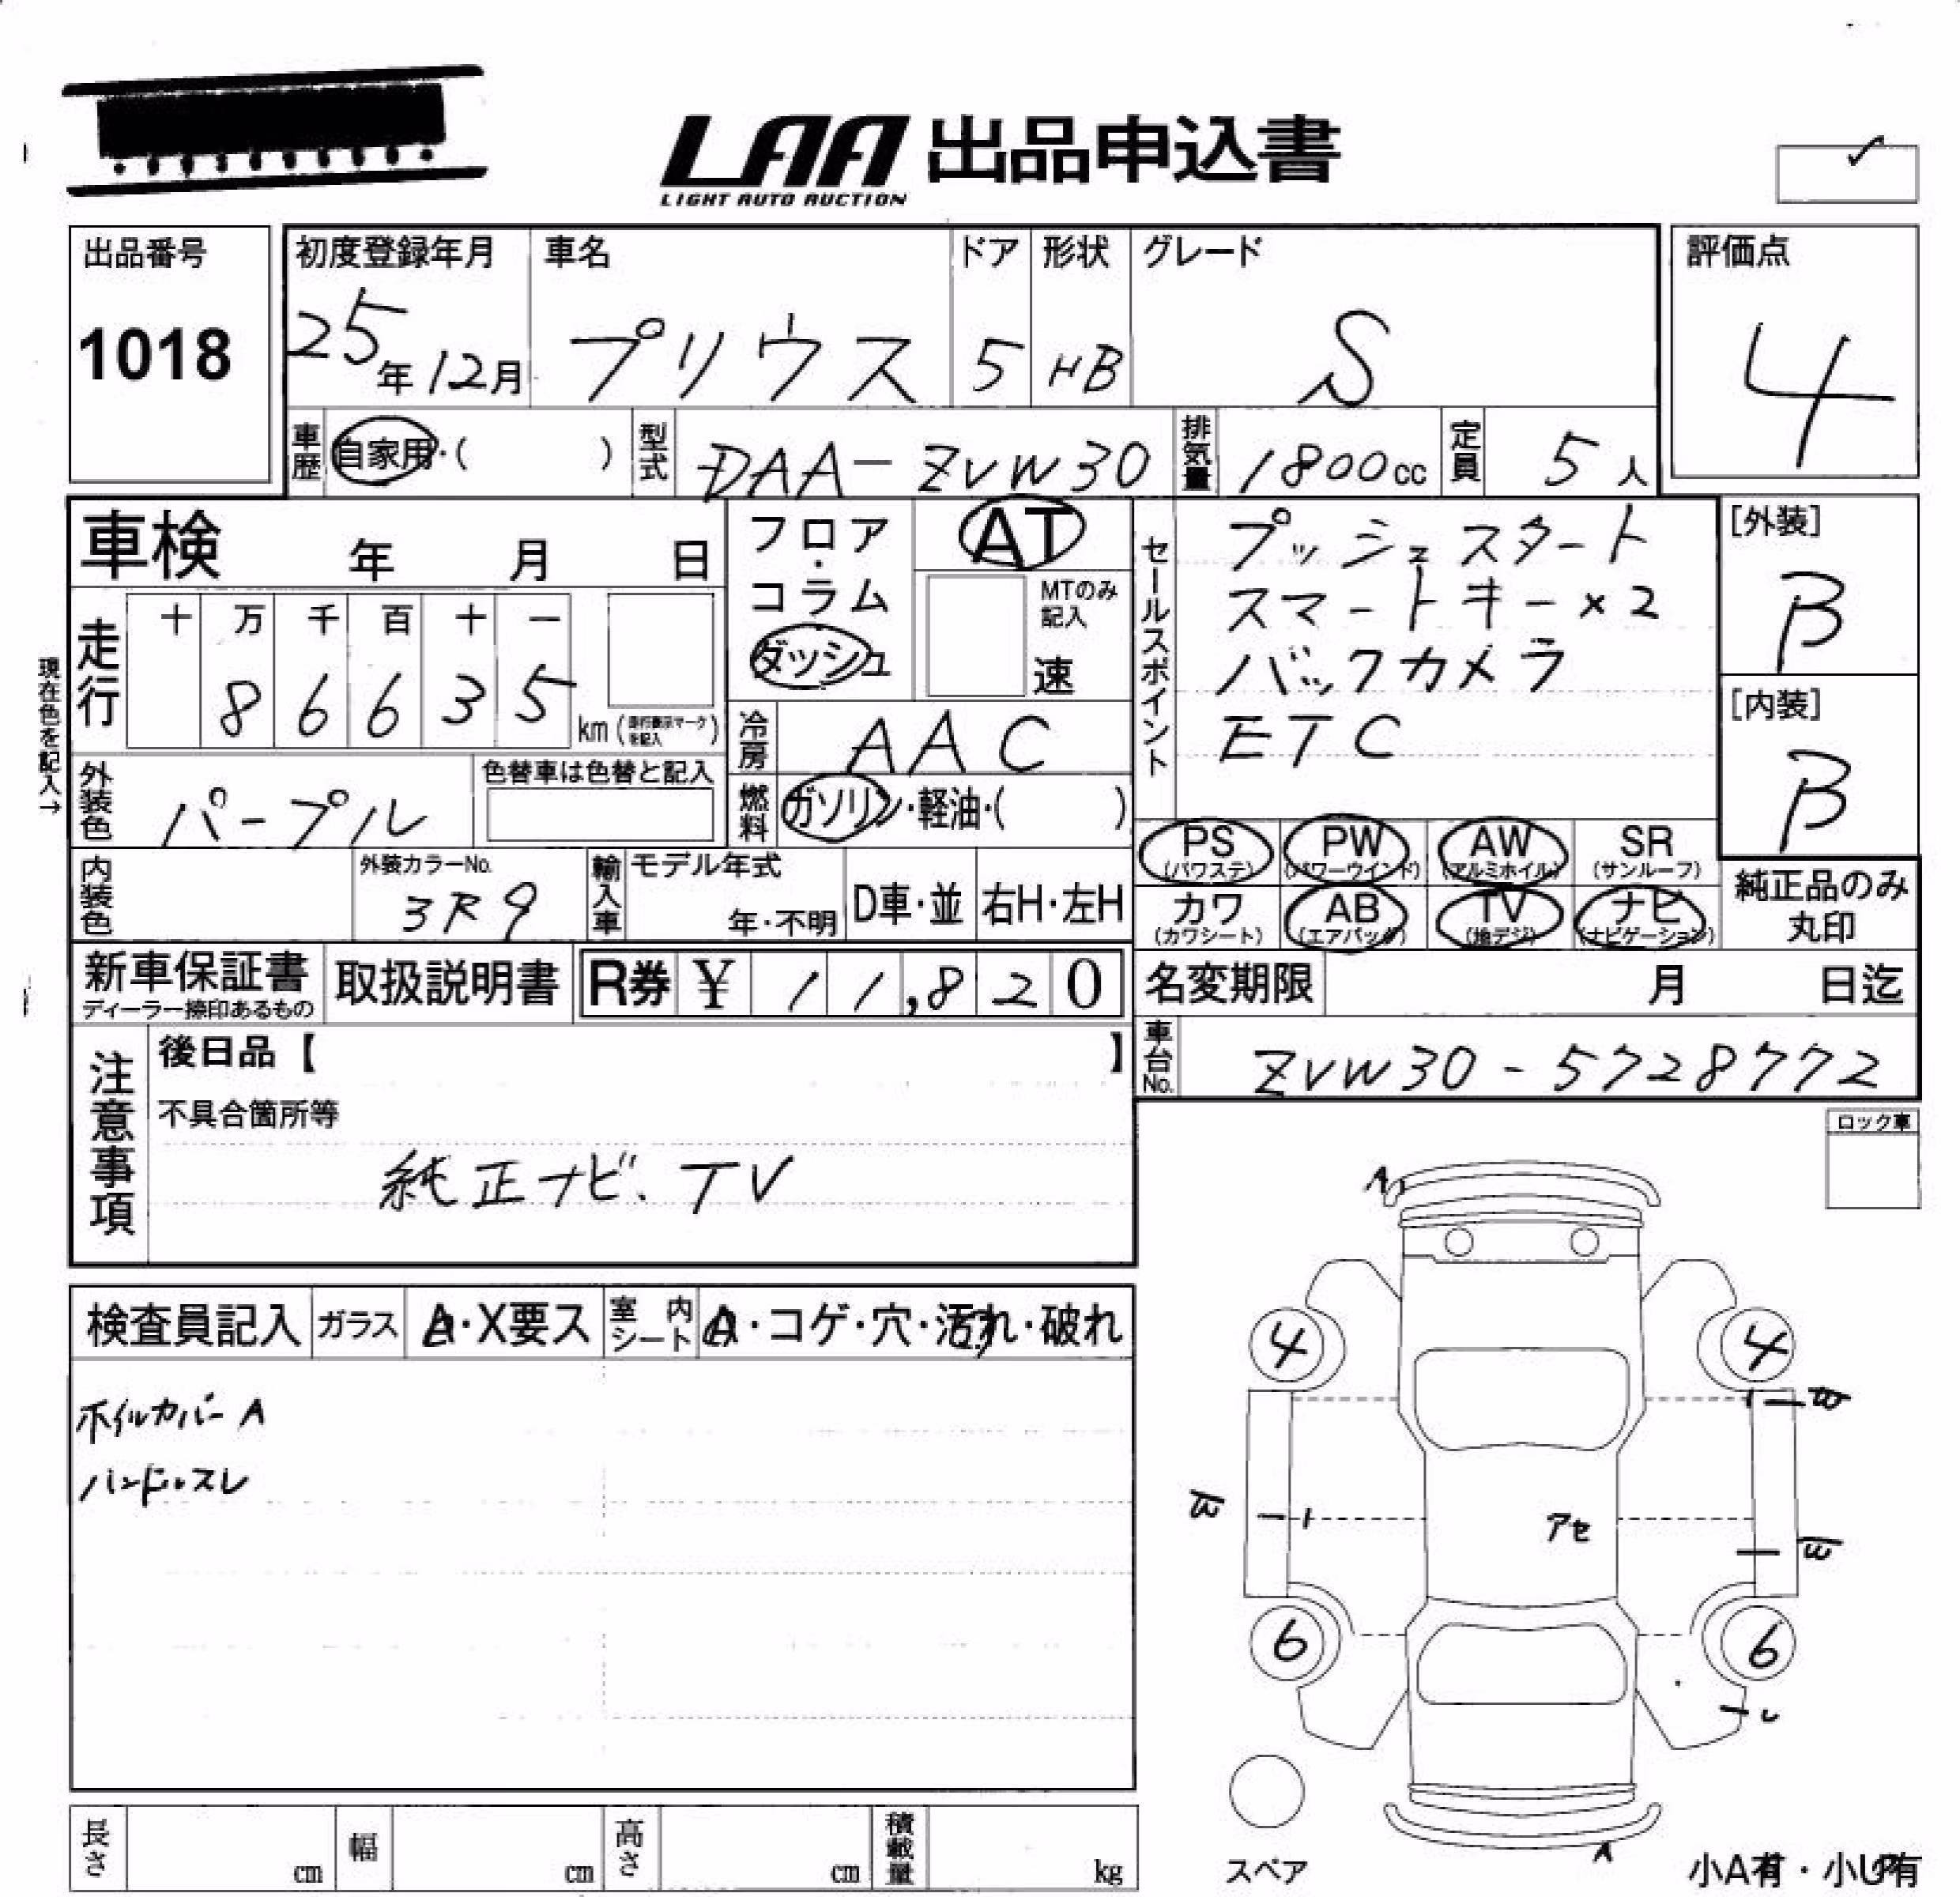 LAA 出品申込書
LIGHT AUTO AUCTION
出品番号
1018
初度登録年月
25年12月
車名
プリウス
ドア
5
形状
HB
グレード
S
評価点
4
車歴
自家用・( )
型式
DAA-ZVW30
排気量
1800cc
定員
5人
車検 年 月 日
フロア・コラム
ダッシュ
AT
MTのみ記入
速
セールスポイント
プッシュスタート
スマートキー×2
バックカメラ
ETC
[外装]
B
[内装]
B
現在色を記入→
走行
十 万 千 百 十 一
8 6 6 3 5
km
冷房
AAC
外装色
パープル
色替車は色替と記入
燃料
ガソリン・軽油・( )
PS
(パワステ)
PW
(パワーウインド)
AW
(アルミホイル)
SR
(サンルーフ)
カワ
(カワシート)
AB
(エアバッグ)
TV
(地デジ)
ナビ
(ナビゲーション)
純正品のみ
丸印
内装色
外装カラーNo.
3R9
輸入車
モデル年式
年・不明
D車・並
右H・左H
新車保証書
ディーラー捺印あるもの
取扱説明書
R券 ¥ 11,820
名変期限 月 日迄
車台No.
ZVW30-5728772
注意事項
後日品【 】
不具合箇所等
純正ナビ.TV
ロック車
検査員記入
ガラス
A・X要ス
室内シート
A・コゲ・穴・汚れ・破れ
ホイルカバー A
ハンドルスレ
A
4
4
アセ
6
6
A
スペア
小A有・小U有
長さ cm
幅 cm
高さ cm
積載量 kg